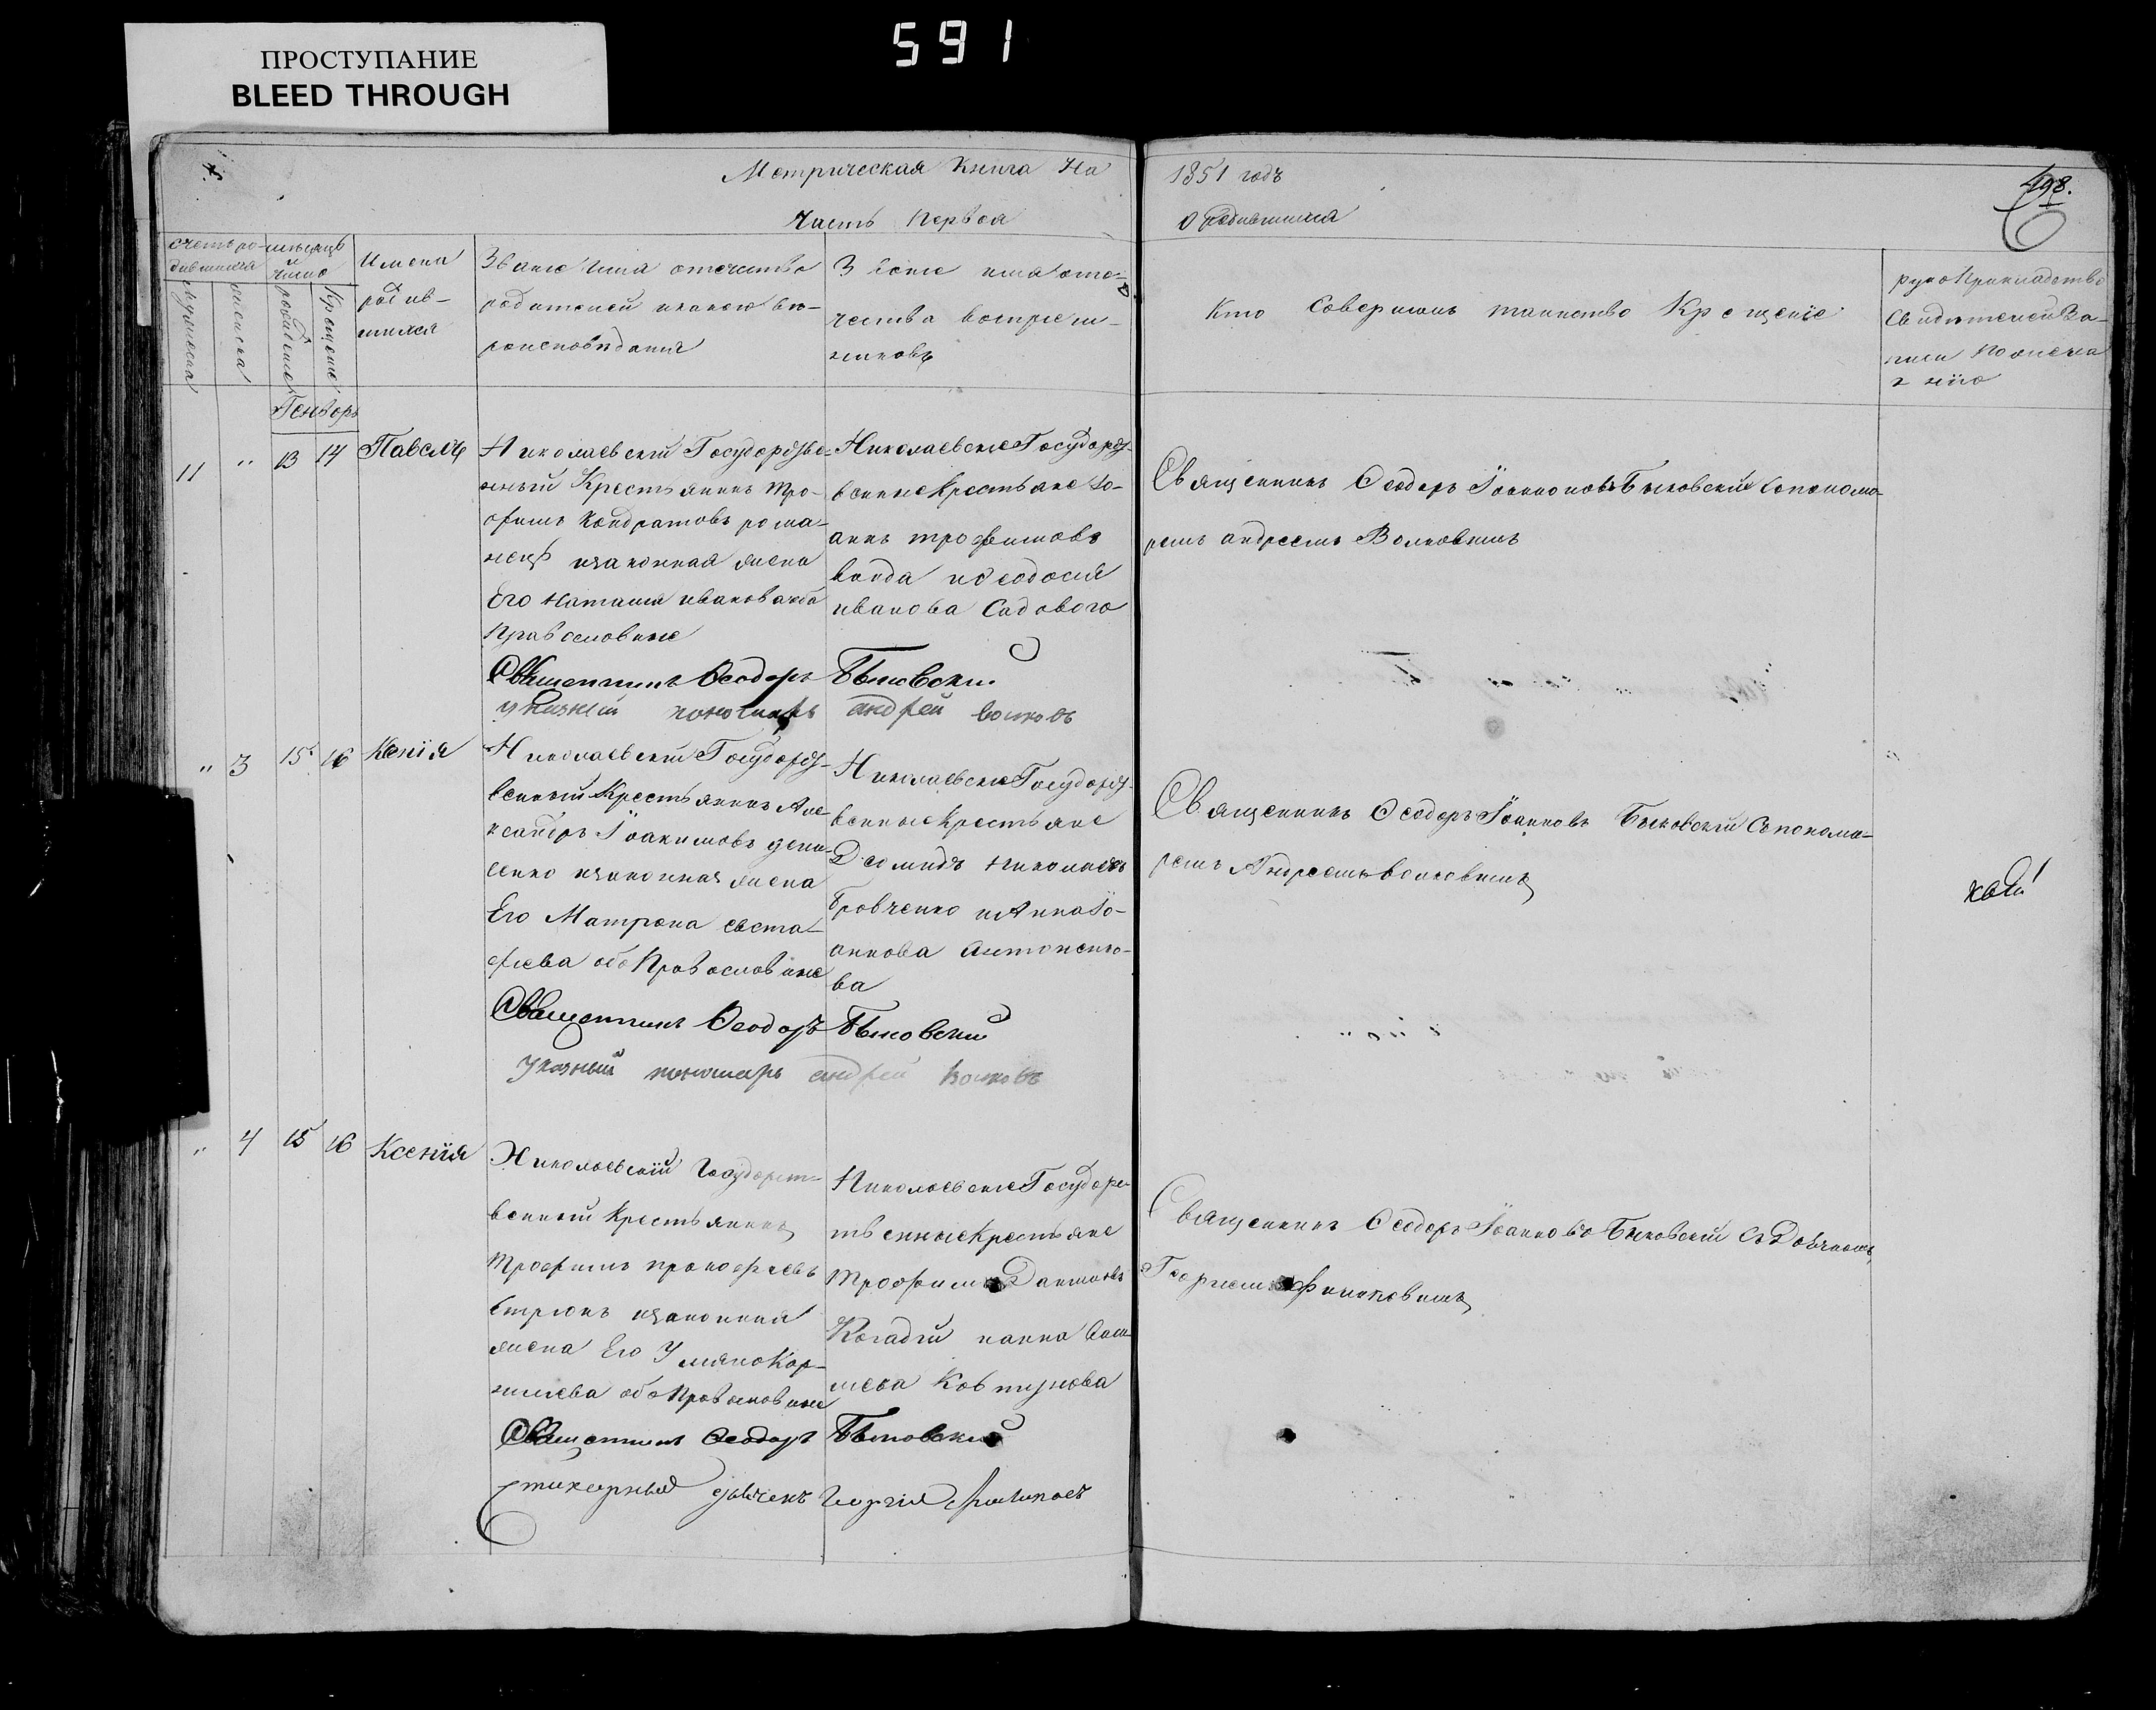 ПРОСТУПАНИЕ
BLEED THROUGH
591
Метрическая Книга На
1851 годъ
498.
Часть Первая
О Родившихся
счетъ ро-
дившихся
мѣсяцъ
и
число
мужеска
женска
рожденія
Крещенія
Имена
родив-
шихся
Званіе имя отчество
родителей и какого вѣ-
роисповѣданія
Званіе имя отче-
чества воспріем-
никовъ
Кто совершилъ таинство Крещенія
рукоприкладство
свидѣтелей за-
писи по жела
нію
Генваръ
11
"
13
14
Павелъ
Николаевскій Государстве-
нный Крестьянинъ Тро-
фимъ Кондратовъ рома-
нецъ изаконная жена
Его Наталия иванова оба
Православные
Николаевские Государст-
венные Крестьяне Іо-
аннъ трофимовъ
ванда иѲеодосия
иванова Садового
Священникъ Ѳеодоръ Іоанновъ Быковскій Спонома-
ремъ андреемъ Волковымъ
Священникъ Ѳеодоръ Быковский
указный пономарь андрей волковъ
"
3
15
16
Ксенія
Николаевский Государст-
венный Крестьянинъ Але-
ксандръ Іоакимовъ дени-
сенко изаконная жена
Его Матрона евста-
фиева оба Православные
Николаевские Государст-
венные Крестьяне
Диомидъ Николаевъ
Бровченко иАнна Іо-
аннова Антоненко-
ва
Священникъ Ѳеодоръ Іоанновъ Быковскій Спонома-
ремъ Андреемъ волковымъ
Священникъ Ѳеодоръ Быковский
Указный пономарь андрей волковъ
"
4
15
16
Ксенія
Николаевскій Государст-
венный Крестьянинъ
Трофимъ прокофиевъ
изаконная
жена Его Улияна Кор-
нилиева оба Православные
Николаевские Государс-
твенные Крестьяне
Трофимъ Данииловъ
Коладій ианна
Ковтунова
Священникъ Ѳеодоръ Іоанновъ Быковский Съ Дьячкомъ
Георгиемъ Филиповымъ
Священникъ Ѳеодоръ Быковский
Стихарный дьячекъ Георгій Филиповъ